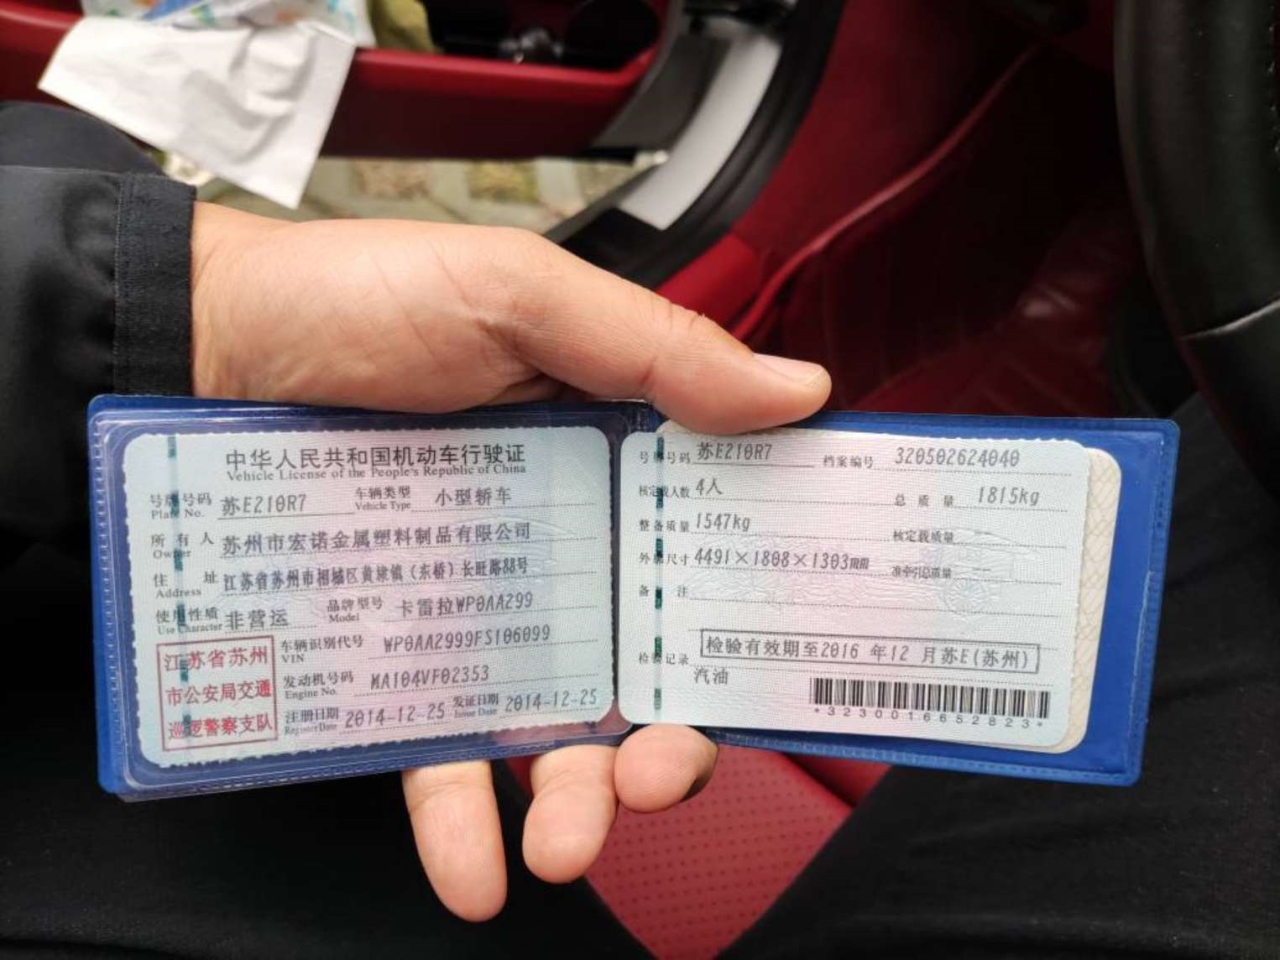 中华人民共和国机动车行驶证
Vehicle License of the People's Republic of China
号牌号码 苏E210R7 车辆类型 小型轿车
Plate No. Vehicle Type
所有人 苏州市宏诺金属塑料制品有限公司
Owner
住址 江苏省苏州市相城区黄埭镇（东桥）长旺路88号
Address
使用性质 非营运 品牌型号 卡雷拉WP0AA299
Use Character Model
江苏省苏州
市公安局交通
巡逻警察支队
车辆识别代号 WP0AA2999FS106099
VIN
发动机号码 MA104VF02353
Engine No.
注册日期 2014-12-25 发证日期 2014-12-25
Register Date Issue Date
号牌号码 苏E210R7 档案编号 320502624040
核定载人数 4人 总质量 1815kg
整备质量 1547kg 核定载质量 —
外廓尺寸 4491×1808×1303mm 准牵引总质量 —
备注
检验有效期至2016 年12 月苏E(苏州)
检验记录
汽油
*3230016652823*